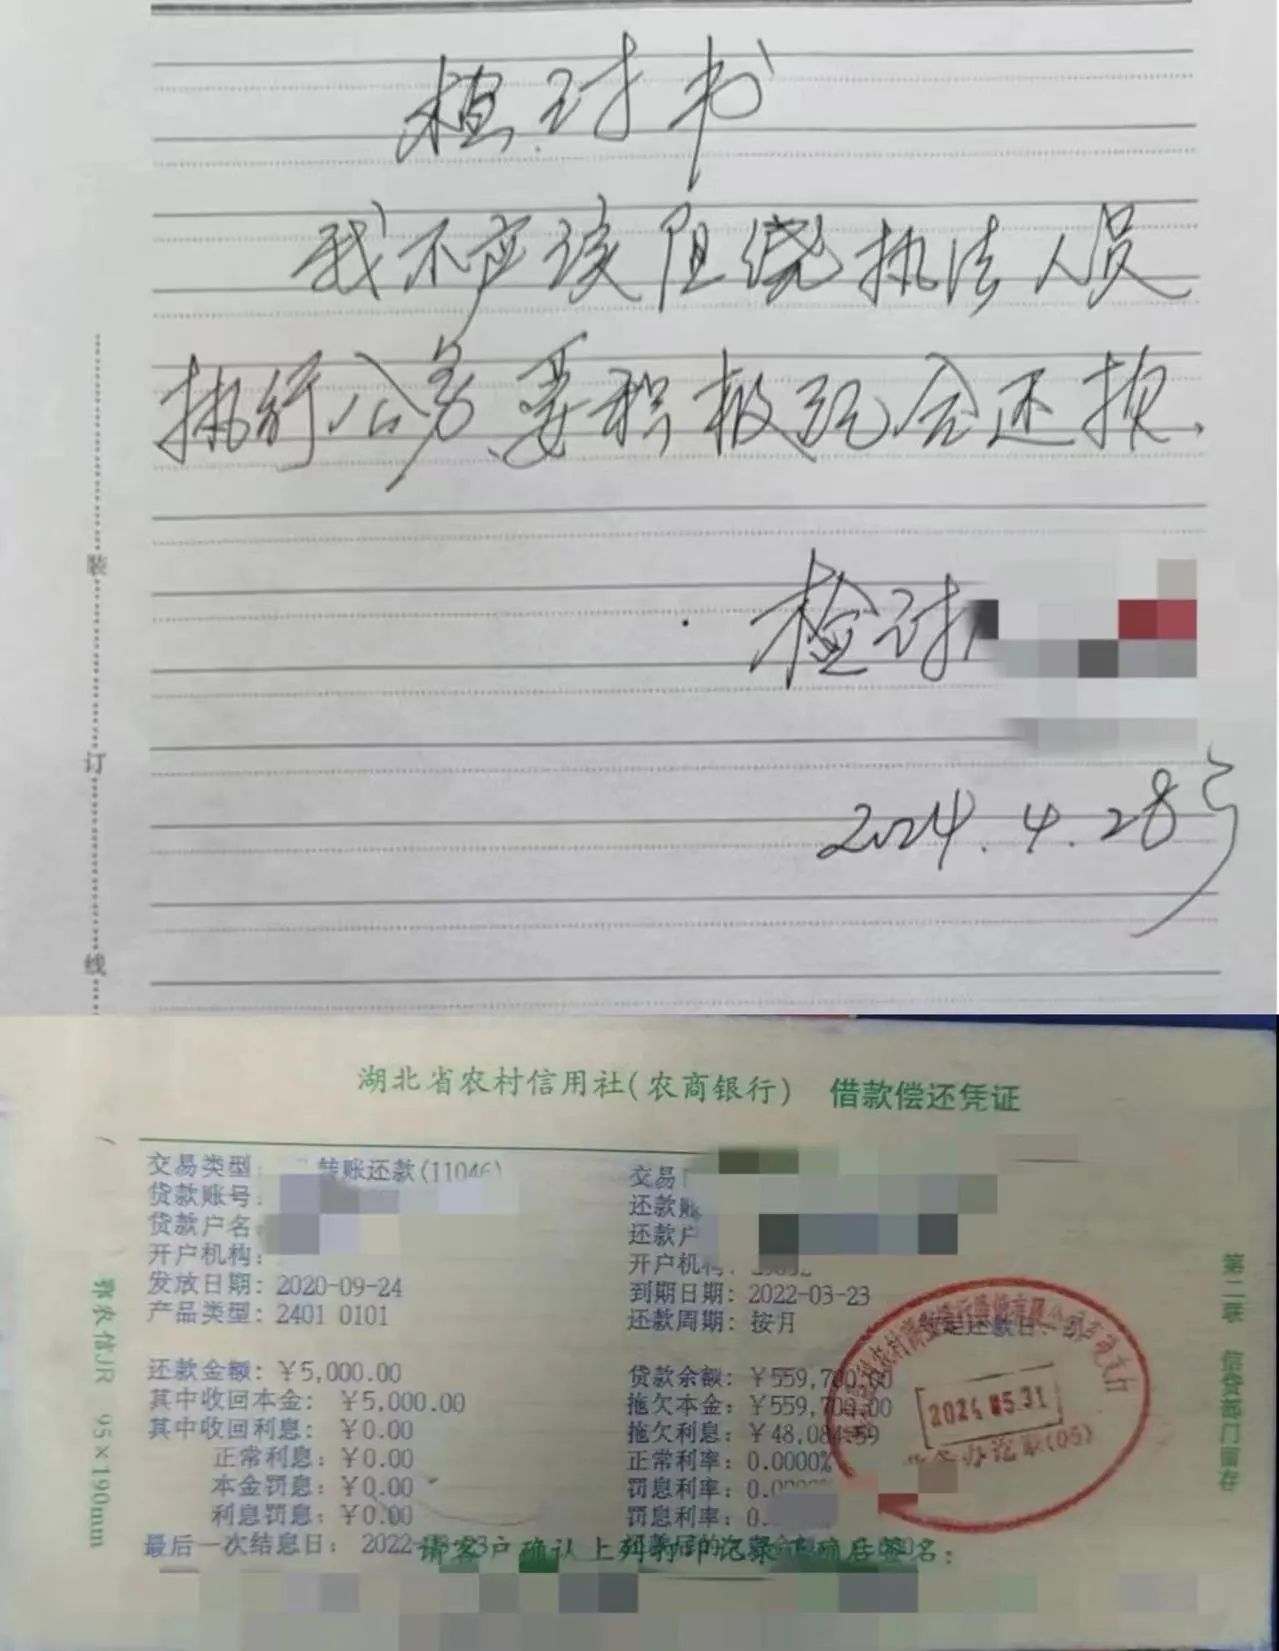 检讨书
我不应该阻绕执法人员
执行公务要积极配合还款、
检讨人
2024.4.28号
装
订
线
湖北省农村信用社(农商银行) 借款偿还凭证
交易类型: 转账还款(11046) 交易
贷款账号: 还款账
贷款户名 还款户
开户机构: 开户机构:
发放日期: 2020-09-24 到期日期: 2022-03-23
产品类型: 2401 0101 还款周期: 按月 还款日:
还款金额: ¥5,000.00 贷款余额: ¥559,700.00
其中收回本金: ¥5,000.00 拖欠本金: ¥559,700.00
其中收回利息: ¥0.00 拖欠利息: ¥48,084.59
正常利息: ¥0.00 正常利率: 0.0000%
本金罚息: ¥0.00 罚息利率: 0.0000%
利息罚息: ¥0.00 罚息利率: 0.
最后一次结息日: 2022 23
请客户确认上列打印记录正确后签名:
鄂农信JR 95×190mm
第二联 信贷部门留存
2024 05.31
(05)